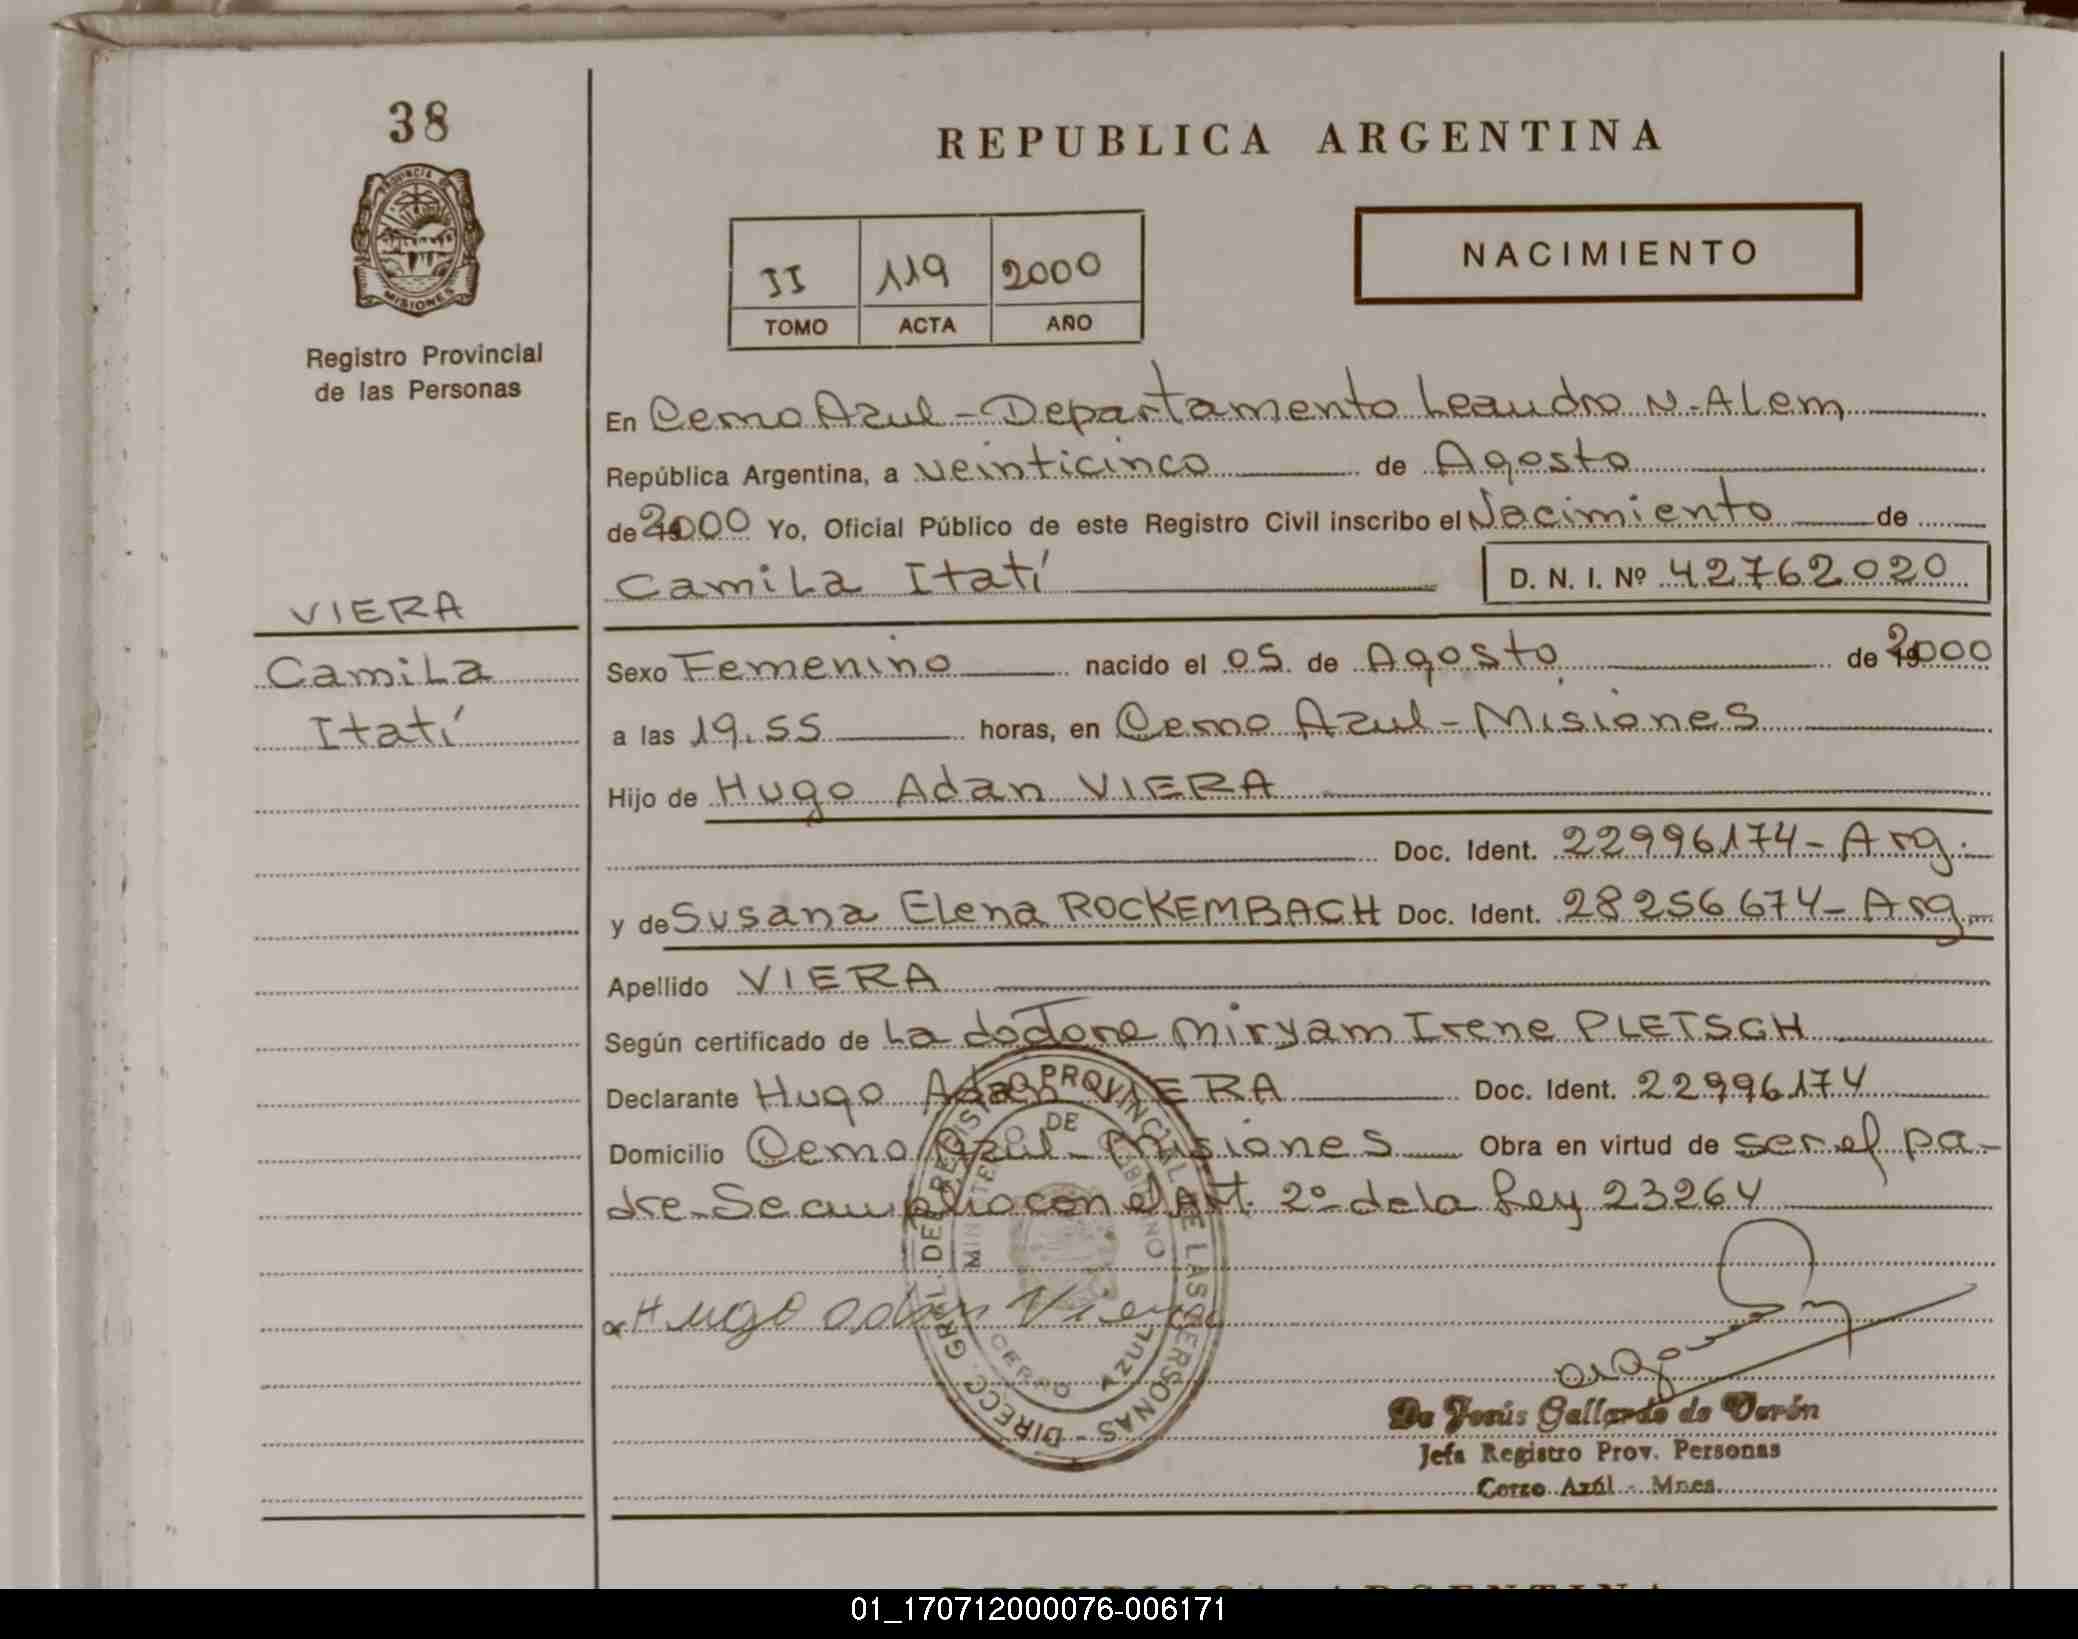 38
REPUBLICA ARGENTINA
PROVINCIA DE
MISIONES
NACIMIENTO
II 119 2000
TOMO ACTA AÑO
Registro Provincial
de las Personas
En Cerro Azul - Departamento Leandro N. Alem
República Argentina, a veinticinco de Agosto
de 2000 Yo, Oficial Público de este Registro Civil inscribo el Nacimiento de
Camila Itatí D. N. I. Nº 42762020
VIERA
Camila
Itatí
Sexo Femenino nacido el 05 de Agosto de 2000
a las 19.55 horas, en Cerro Azul - Misiones
Hijo de Hugo Adan VIERA
Doc. Ident. 22996174 - Arg.
y de Susana Elena ROCKEMBACH Doc. Ident. 28256674 - Arg.
Apellido VIERA
Según certificado de La doctora Miryam Irene PLETSCH
Declarante Hugo Adan VIERA Doc. Ident. 22996174
Domicilio Cerro Azul - Misiones Obra en virtud de ser el pa-
dre - Se cumplio con el Art. 2º de la Ley 23264
Hugo adan Viera
DIRECC. GRAL. DEL REGISTRO PROVINCIAL DE LAS PERSONAS -
MINISTERIO DE GOBIERNO
CERRO AZUL
De Jesús Gallardo de Verón
Jefa Registro Prov. Personas
Cerro Azúl - Mnes.
REPUBLICA ARGENTINA
01_170712000076-006171